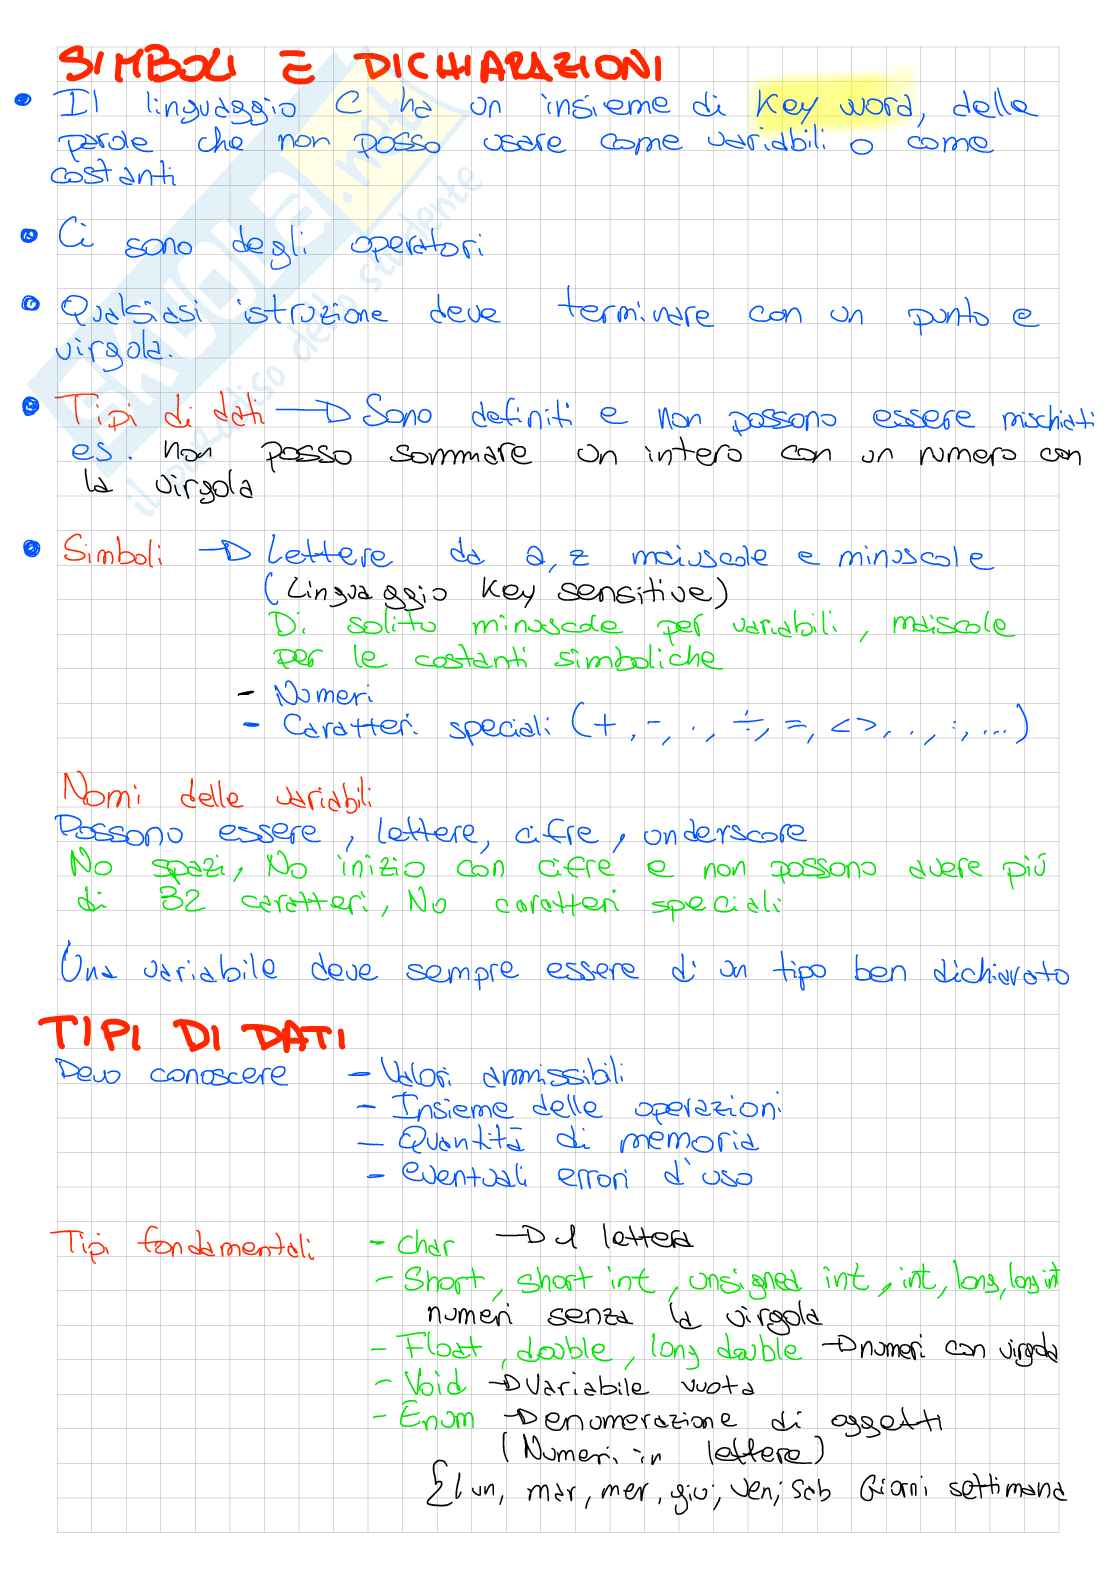 SIMBOLI E DICHIARAZIONI
• Il linguaggio C ha un insieme di Key word, delle
parole che non posso usare come variabili o come
costanti
• Ci sono degli operatori
• Qualsiasi istruzione deve terminare con un punto e
virgola.
• Tipi di dati → Sono definiti e non possono essere mischiati
es. non posso sommare un intero con un numero con
la virgola
• Simboli → Lettere da a, z maiuscole e minuscole
(Linguaggio Key sensitive)
Di solito minuscole per variabili, maiscole
per le costanti simboliche
- Numeri
- Caratteri speciali (+, -, ·, ÷, =, <>, ., :, ...)
Nomi delle variabili
Possono essere, lettere, cifre, underscore
No spazi, No inizio con cifre e non possono avere più
di 32 caratteri, No caratteri speciali
Una variabile deve sempre essere di un tipo ben dichiarato
TIPI DI DATI
Devo conoscere - Valori ammissibili
- Insieme delle operazioni
- Quantità di memoria
- eventuali errori d'uso
Tipi fondamentali - char → 1 lettera
- Short, short int, unsigned int, int, long, long int
numeri senza la virgola
- Float, double, long double → numeri con virgola
- Void → Variabile vuota
- Enum → enumerazione di oggetti
(Numeri in lettere)
{lun, mar, mer, giu, ven, sab Giorni settimana
SKUOLA.net
il paradiso dello studente